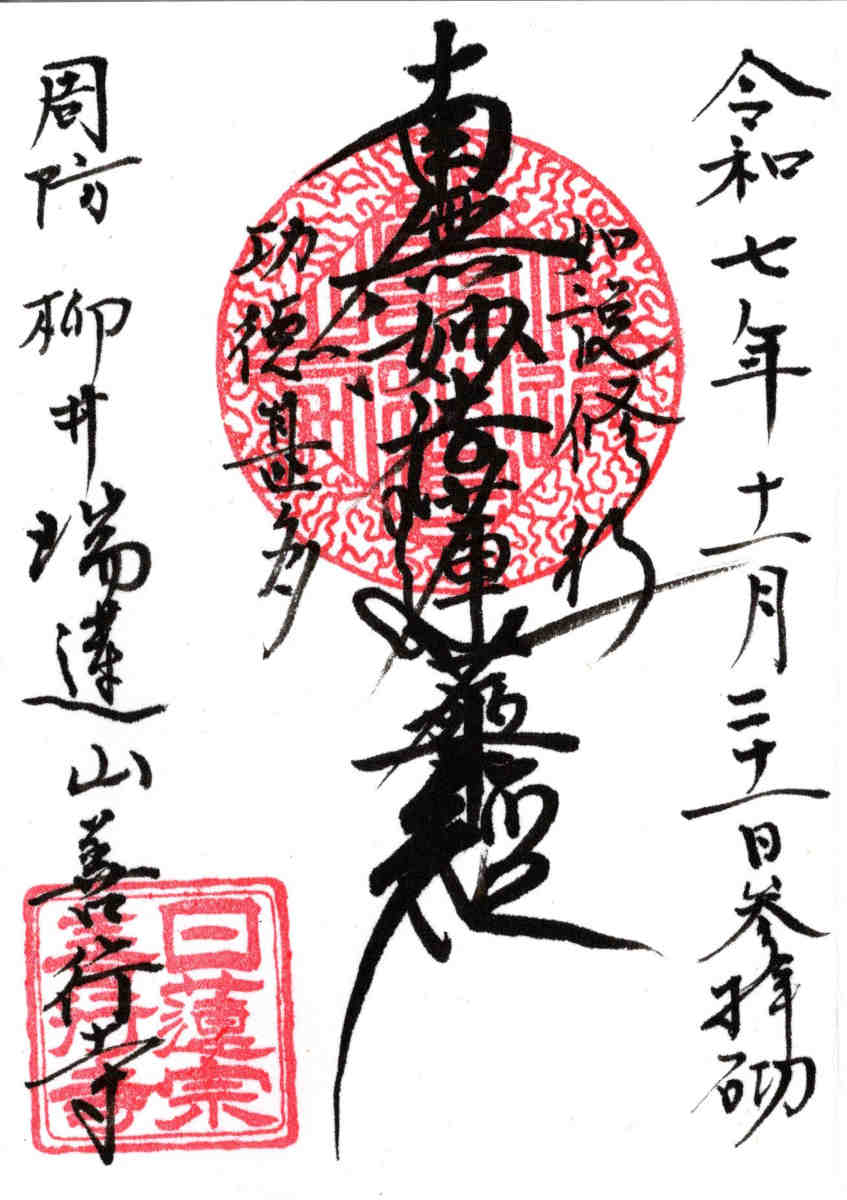 令和七年十一月二十一日参拝砌
如説修行
南無妙法蓮華経
功徳甚多
周防 柳井瑞蓮山善行寺
日蓮宗
善行寺